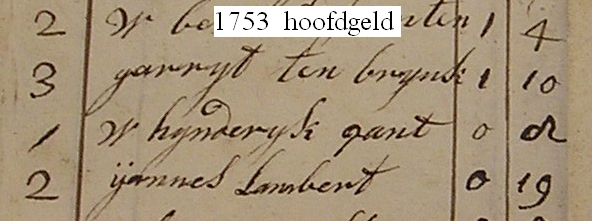 1753 hoofdgeld
2 W be 1 4
3 garryt ten brynk 1 10
1 W hynderyk qant 0
2 ijannes Lambert 0 19